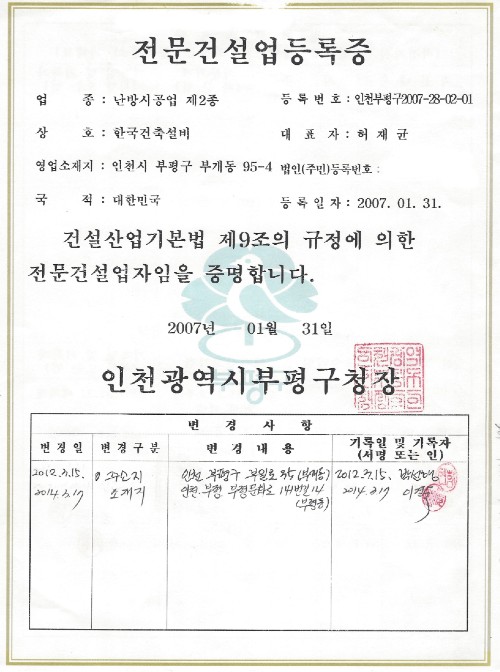 전문건설업등록증
업 종 : 난방시공업 제2종 등 록 번 호 : 인천부평구2007-28-02-01
상 호 : 한국건축설비 대 표 자 : 허 재 균
영업소재지 : 인천시 부평구 부개동 95-4 법인(주민)등록번호 :
국 적 : 대한민국 등 록 일 자 : 2007. 01. 31.
건설산업기본법 제9조의 규정에 의한
전문건설업자임을 증명합니다.
2007년 01월 31일
인천광역시부평구청장
변 경 사 항
변 경 일 변 경 구 분 변 경 내 용 기록일 및 기록자
(서명 또는 인)
2012.3.15. 소지 인천 부평구 부일로 35(부개동) 2012.3.15.
2014.3.17 소재지 인천 부평 부평문화로 141번길 14 2014.3.17
(부평동)